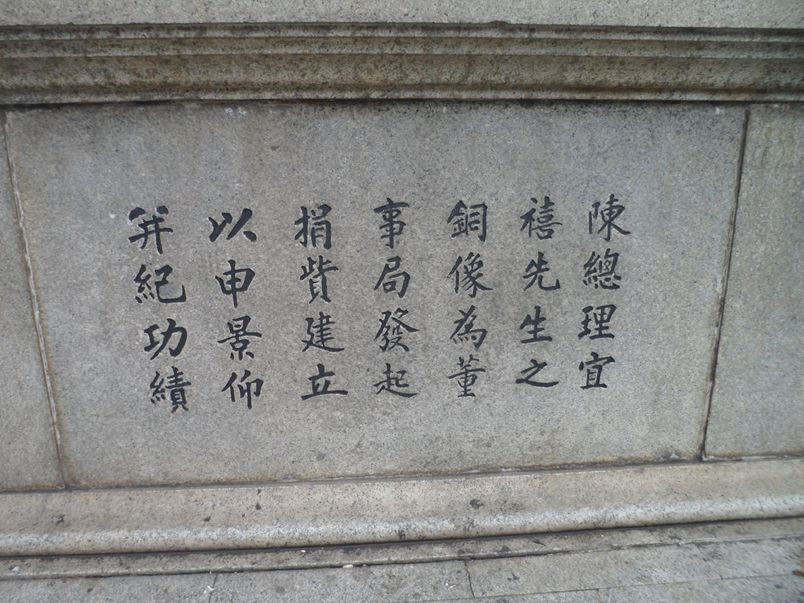 陳總理宜
禧先生之
銅像為董
事局發起
捐貲建立
以申景仰
并紀功績